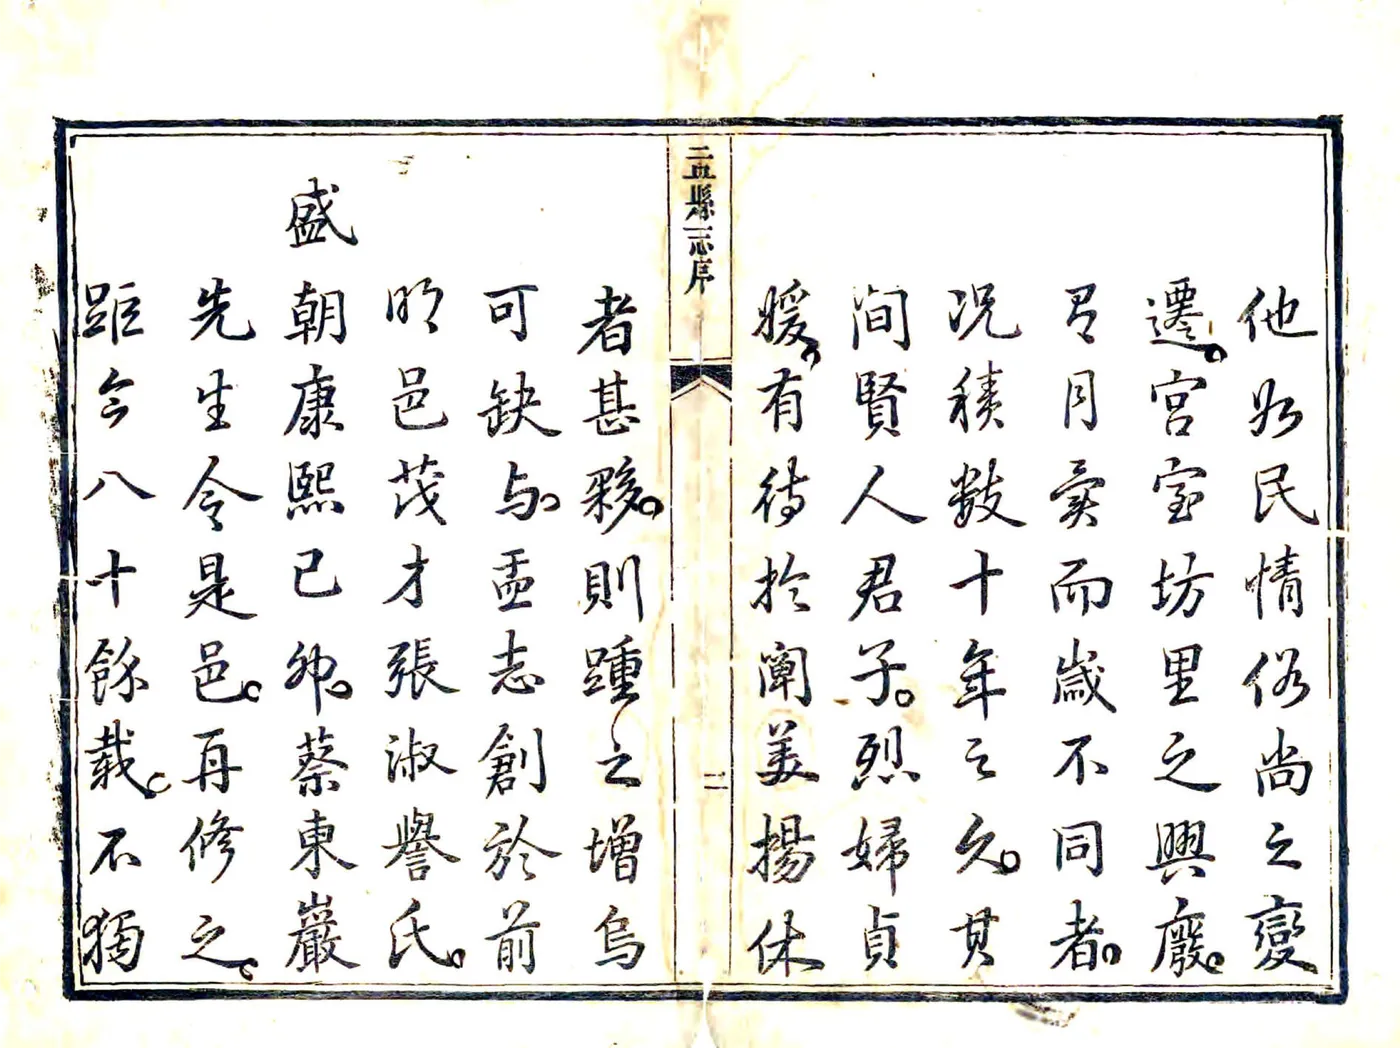 他如民情俗尚之變
遷宮室坊里之興廢
有月異而歲不同者
况積数十年之久其
间賢人君子烈婦貞
媛有待於闡美揚休
盂縣志序
二
者甚夥則踵之增烏
可缺与盂志創於前
明邑茂才張淑譽氏
盛
朝康熙己卯蔡東巖
先生令是邑再修之
距今八十餘载不獨